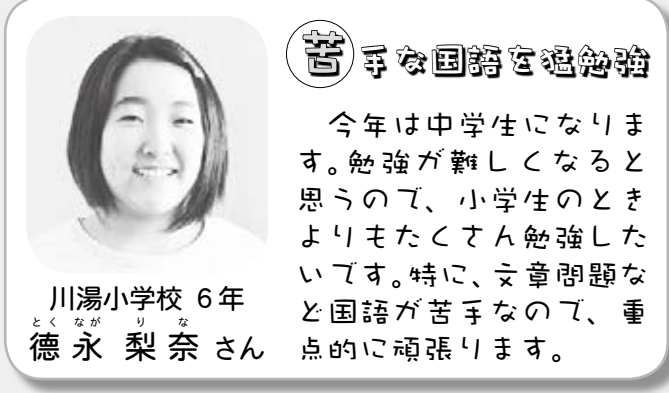 苦手な国語を猛勉強
今年は中学生になりま
す。勉強が難しくなると
思うので、小学生のとき
よりもたくさん勉強した
いです。特に、文章問題な
ど国語が苦手なので、重
点的に頑張ります。
川湯小学校 6年
とく なが り な
德永 梨奈 さん